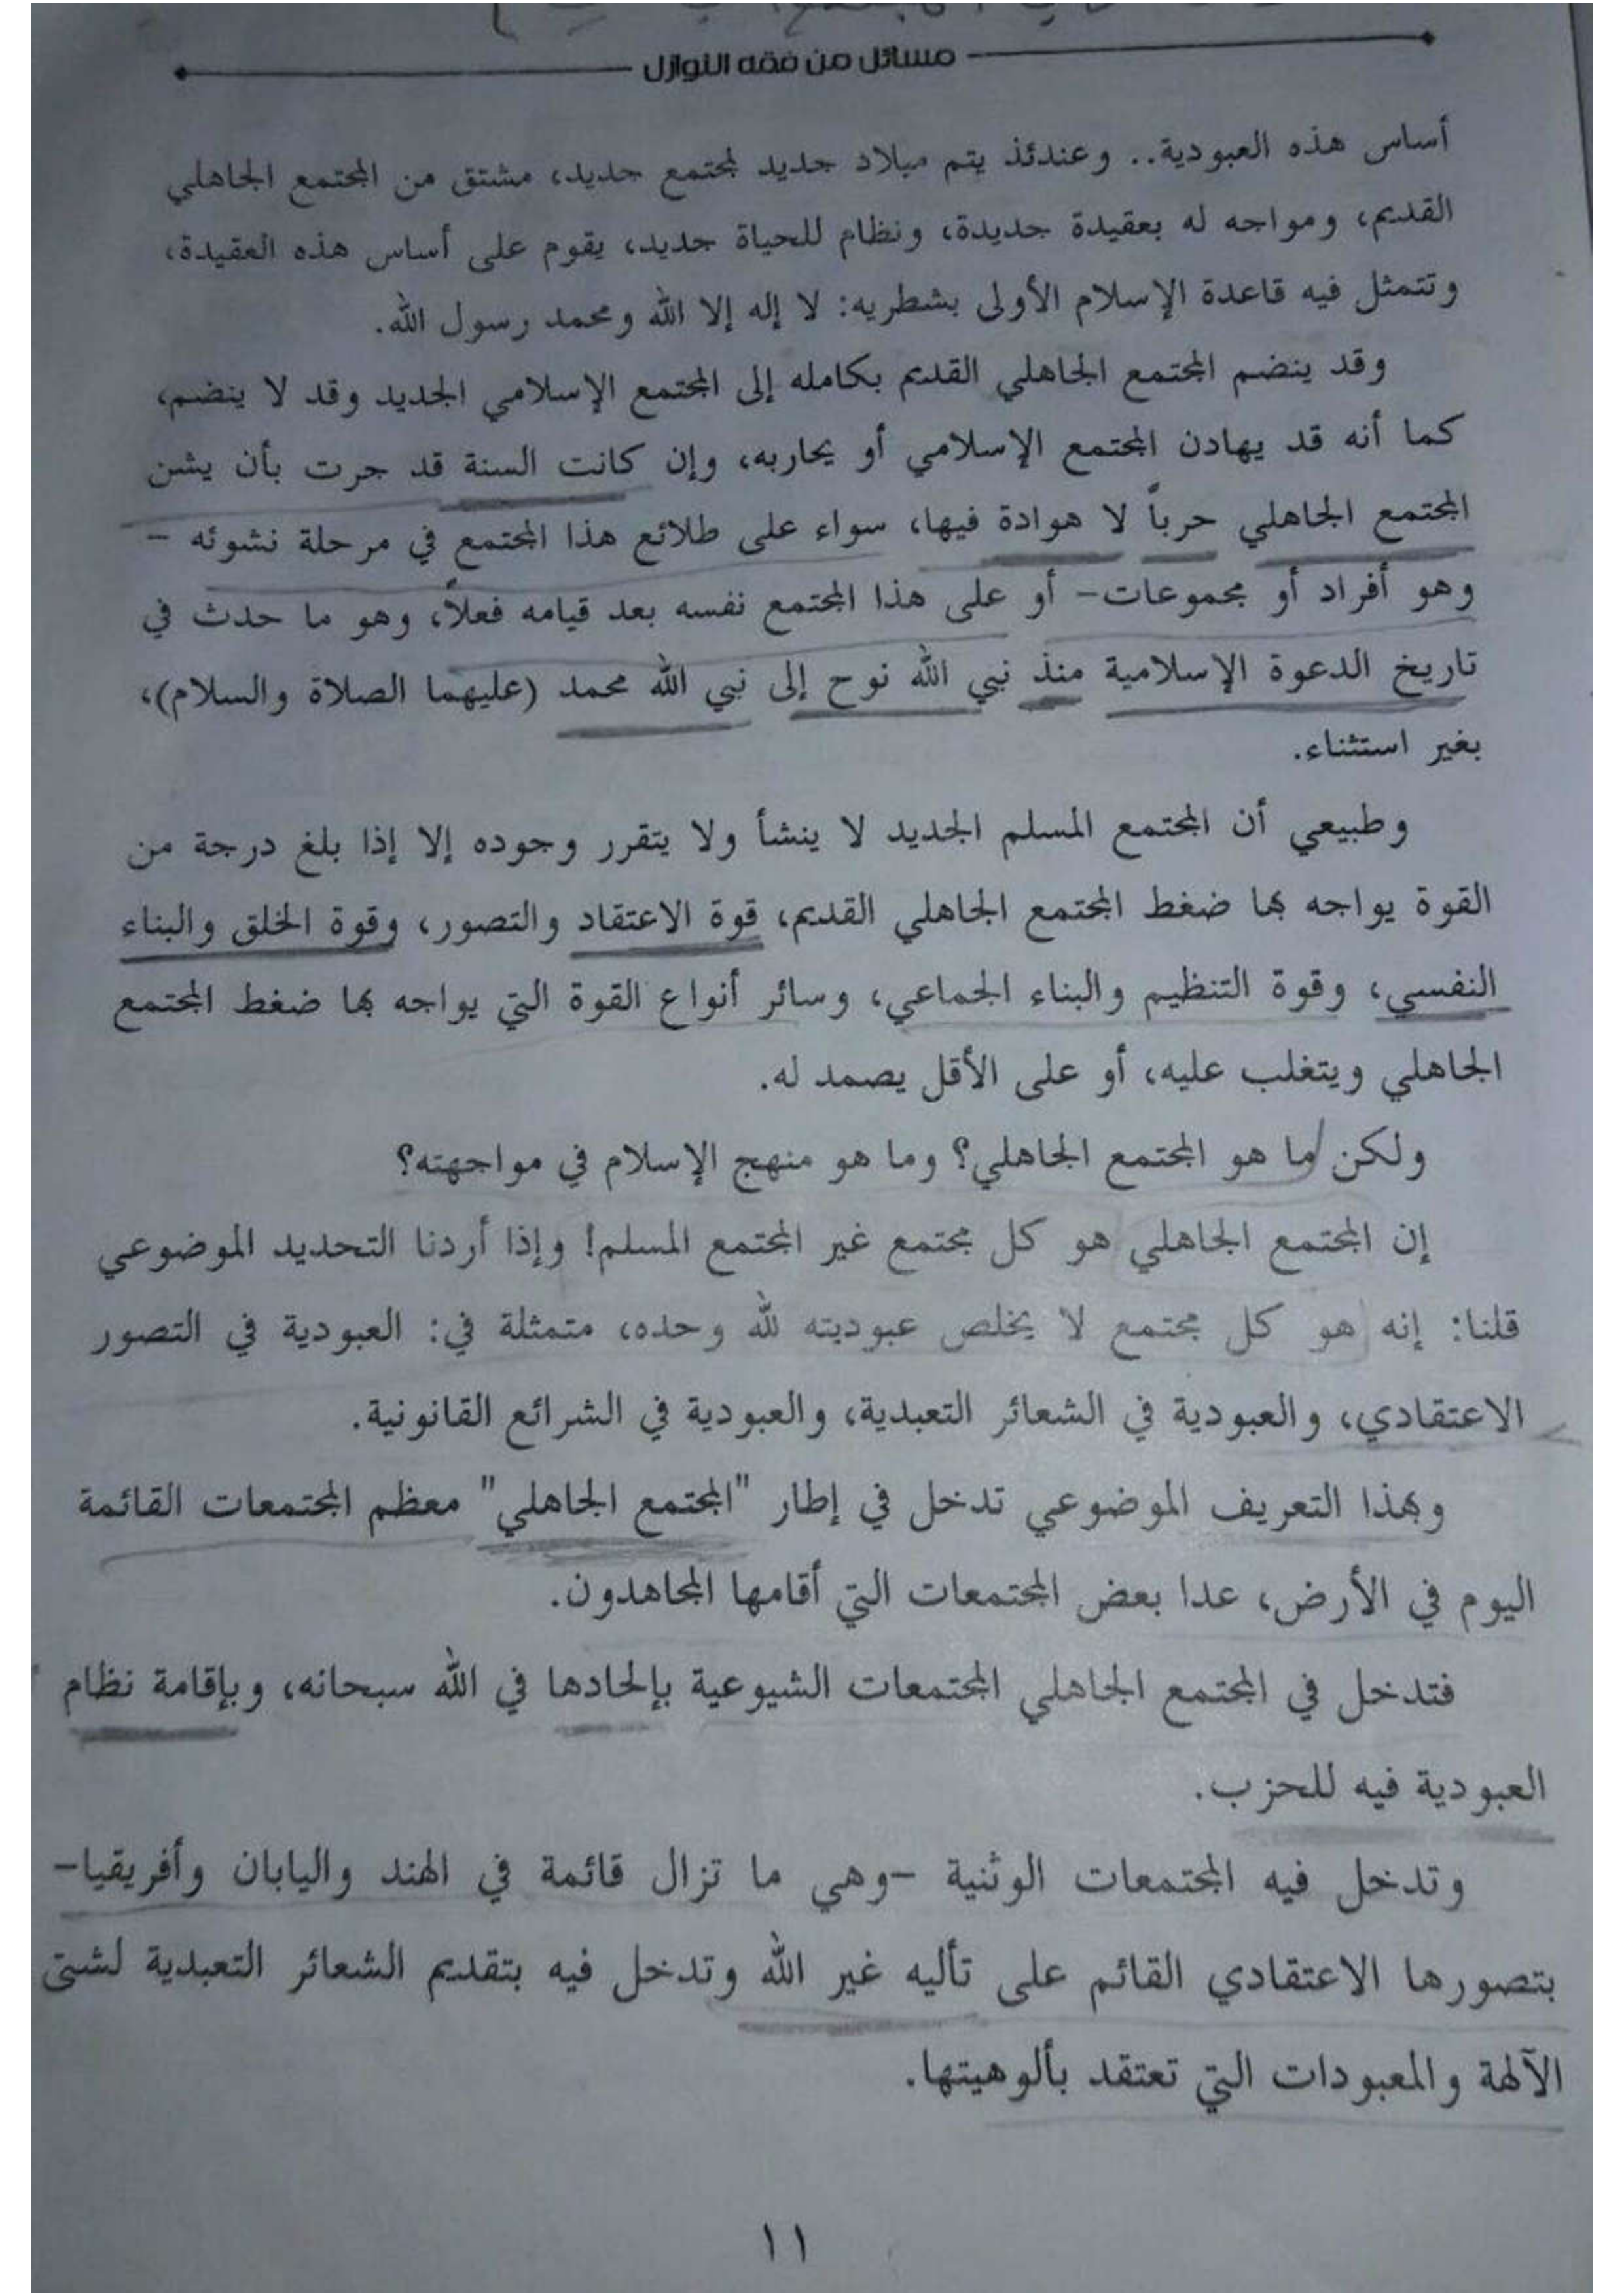 مسائل من فقه النوازل
أساس هذه العبودية.. وعندئذ يتم ميلاد جديد لمجتمع جديد، مشتق من المجتمع الجاهلي
القديم، ومواجه له بعقيدة جديدة، ونظام للحياة جديد، يقوم على أساس هذه العقيدة،
وتتمثل فيه قاعدة الإسلام الأولى بشطريه: لا إله إلا الله ومحمد رسول الله.
وقد ينضم المجتمع الجاهلي القديم بكامله إلى المجتمع الإسلامي الجديد وقد لا ينضم،
كما أنه قد يهادن المجتمع الإسلامي أو يحاربه، وإن كانت السنة قد جرت بأن يشن
المجتمع الجاهلي حرباً لا هوادة فيها، سواء على طلائع هذا المجتمع في مرحلة نشوئه -
وهو أفراد أو مجموعات- أو على هذا المجتمع نفسه بعد قيامه فعلاً، وهو ما حدث في
تاريخ الدعوة الإسلامية منذ نبي الله نوح إلى نبي الله محمد (عليهما الصلاة والسلام)،
بغير استثناء.
وطبيعي أن المجتمع المسلم الجديد لا ينشأ ولا يتقرر وجوده إلا إذا بلغ درجة من
القوة يواجه بها ضغط المجتمع الجاهلي القديم، قوة الاعتقاد والتصور، وقوة الخلق والبناء
النفسي، وقوة التنظيم والبناء الجماعي، وسائر أنواع القوة التي يواجه بها ضغط المجتمع
الجاهلي ويتغلب عليه، أو على الأقل يصمد له.
ولكن ما هو المجتمع الجاهلي؟ وما هو منهج الإسلام في مواجهته؟
إن المجتمع الجاهلي هو كل مجتمع غير المجتمع المسلم! وإذا أردنا التحديد الموضوعي
قلنا: إنه هو كل مجتمع لا يخلص عبوديته لله وحده، متمثلة في: العبودية في التصور
الاعتقادي، والعبودية في الشعائر التعبدية، والعبودية في الشرائع القانونية.
وبهذا التعريف الموضوعي تدخل في إطار "المجتمع الجاهلي" معظم المجتمعات القائمة
اليوم في الأرض، عدا بعض المجتمعات التي أقامها المجاهدون.
فتدخل في المجتمع الجاهلي المجتمعات الشيوعية بإلحادها في الله سبحانه، وبإقامة نظام
العبودية فيه للحزب.
وتدخل فيه المجتمعات الوثنية -وهي ما تزال قائمة في الهند واليابان وأفريقيا-
بتصورها الاعتقادي القائم على تأليه غير الله وتدخل فيه بتقديم الشعائر التعبدية لشتى
الآلهة والمعبودات التي تعتقد بألوهيتها.
١١